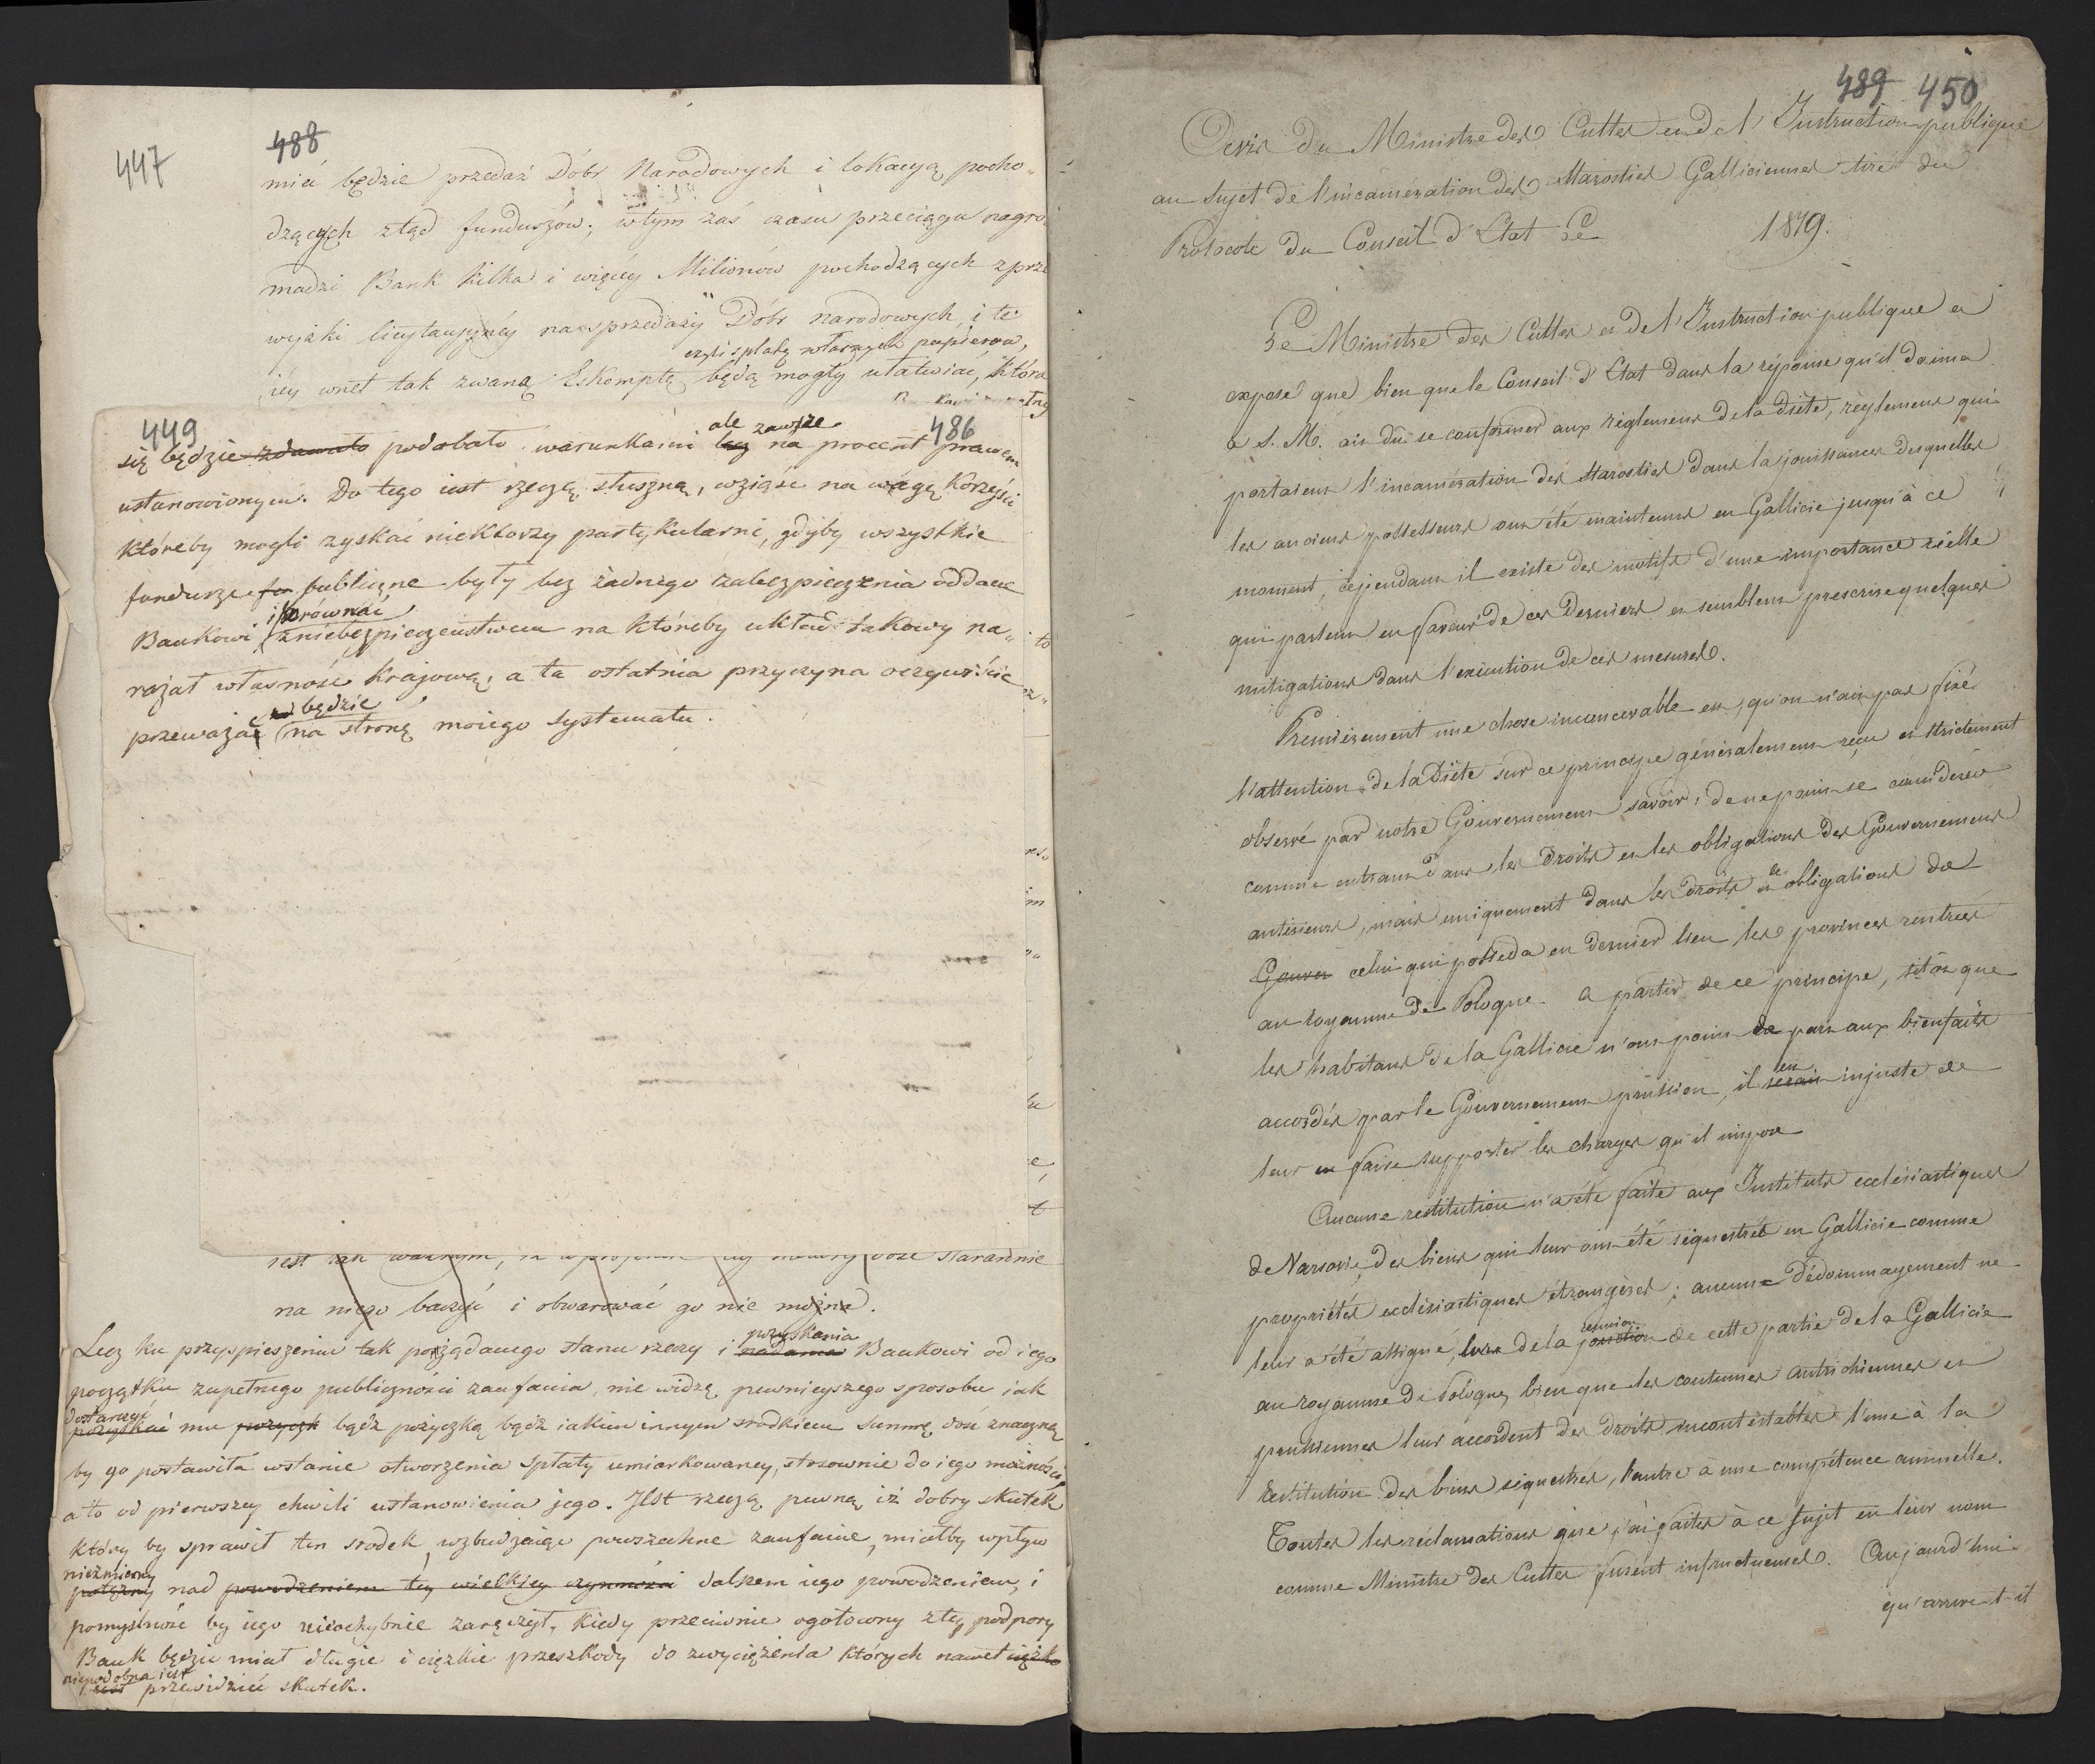 447
488
mieć będzie przedaż Dóbr Narodowych i lokacyą pocho„
dzących ztąd funduszów; w tym zaś czasu przeciągu nagro„
madzi Bank kilka i więcéy Milionów pochodzących z prze
wyżki licytacyinéy na sprzedaży Dóbr narodowych, i te
czyli spłatę własnych papierow,
iéy wnet tak zwaną Eskomptę będą mogły ułatwiać, która
449
486
ale zawsze
się będzie zdawało podobało warunkami lecz na procent prawem
ustanowionym. Do tego iest rzeczą słuszną, wziąść na wagę korzyści
któreby mogli zyskać niektorzy partykularni, gdyby wszystkie
fundusze fu publiczne były bez żadnego zabezpieczenia oddane
i porównać
Bankowi z niebezpieczeństwem na któreby układ takowy na„
rażał własność Kraiową, a ta ostatnia przyczyna oczywiście
będzie
przeważać na stronę moiego systematu.
na niego baczyć i obwarować go nie można.
Lecz ku przyspieszeniu tak pożądanego stanu rzeczy i nadania Bankowi od iego
pozyskania
początku zupełnego publiczności zaufania, nie widzę pewnieyszego sposobu iak
dostarczyć
pozyskać mu pożyczk bądź pożyczką bądź iakim innym srodkiem Summę dość znaczną
by go postawiła w stanie otworzenia spłaty umiarkowaney, stosownie do iego możności
a to od pierwszey chwili ustanowienia jego. Jest rzeczą pewną iż dobry skutek
który by sprawił ten srodek, wzbudzaiąc powszechne zaufanie, miałby wpływ
niezmierny
potężny nad powodzeniem tey wielkiey czynności dalszem iego powodzeniem, i
pomyślność by iego nieochybnie zaręczył, kiedy przeciwnie ogołocony z tey podpory
Bank będzie miał długie i ciężkie przeszkody do zwyciężenia których nawet ciężko
niepodobna iest
przewidzieć skutek.
489 450
Avis du Ministre des Cultes et de l'Instruction publique
au sujet de l'incamération des Starosties Galliciennes tiré du
Protocole du Conseil d'Etat Le 1819.
Le Ministre des Cultes et de l'Instruction publique a
exposé que bien que le Conseil d'Etat dans la réponse qu'il donna
à S. M. ait dû se conformer aux réglemens de la diète, réglemens qui
portaient l'incamération des Starosties dans la jouissance desquelles
les anciens possesseurs ont été maintenus en Gallicie jusqu'à ce
moment, cependant il existe des motifs d'une importance réelle
qui parlent en faveur de ces derniers et semblent prescrire quelques
mitigations dans l'exécution de ces mesures.
Premièrement une chose inconcevable est, qu'on n'ait pas fixé
l'attention de la Diète sur ce principe généralement reçu et strictement
observé par notre Gouvernement savoir, de ne point se considérer
comme entrant dans les droits et les obligations des Gouvernemens
antérieurs, mais uniquement dans les droits et les obligations de
Gouver celui qui posseda en dernier lieu les provinces rentrées
au royaume de Pologne. A partir de ce principe, sitôt que
les habitans de la Gallicie n'ont point de part aux bienfaits
accordés par le Gouvernement prussien, il est serait injuste de
leur en faire supporter les charges qu'il impose
Aucune restitution n'a été faite aux Instituts ecclésiastiques
de Varsovie, des biens qui leur ont été séquestrés en Gallicie comme
propriétés ecclésiastiques étrangères; aucun dédommagement ne
réunion
leur a été assigné, lors de la jonction de cette partie de la Gallicie
au royaume de Pologne, bien que les coutumes autrichiennes et
prussiennes leur accordent des droits incontestables l'une à la
restitution des biens séquestrés, l'autre à une compétence annuelle.
Toutes les réclamations que j'ai faites à ce sujet en leur nom
comme Ministre des Cultes furent infructueuses. Aujourd'hui
qu'arrive-t-il